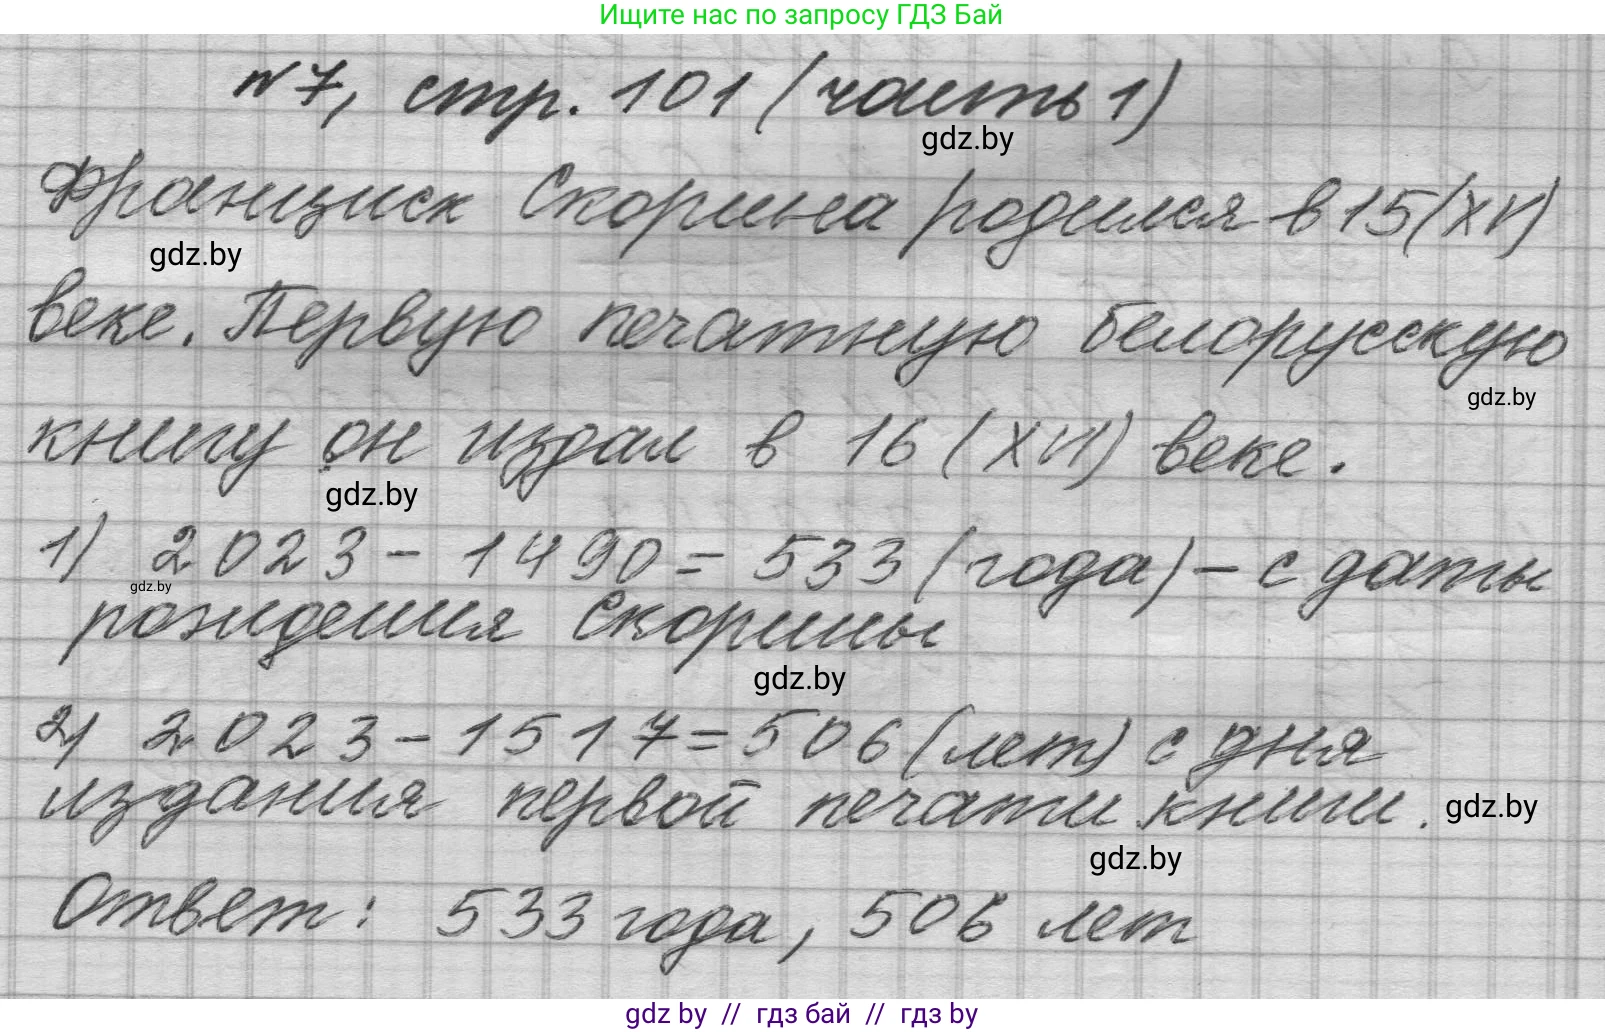 Ищите нас по запросу ГДЗ Бай
№7, стр. 101 (часть 1)
gdz.by
Франциск Скорина родился в 15(XV)
gdz.by
веке. Первую печатную белорусскую
gdz.by
книгу он издал в 16 (XVI) веке.
gdz.by
1) 2023 - 1490 = 533 (года) - с даты
gdz.by
рождения Скорины
gdz.by
2) 2023 - 1517 = 506 (лет) с дня
издания первой печати книги.
gdz.by
gdz.by
Ответ: 533 года, 506 лет
gdz.by // гдз бай // гдз by